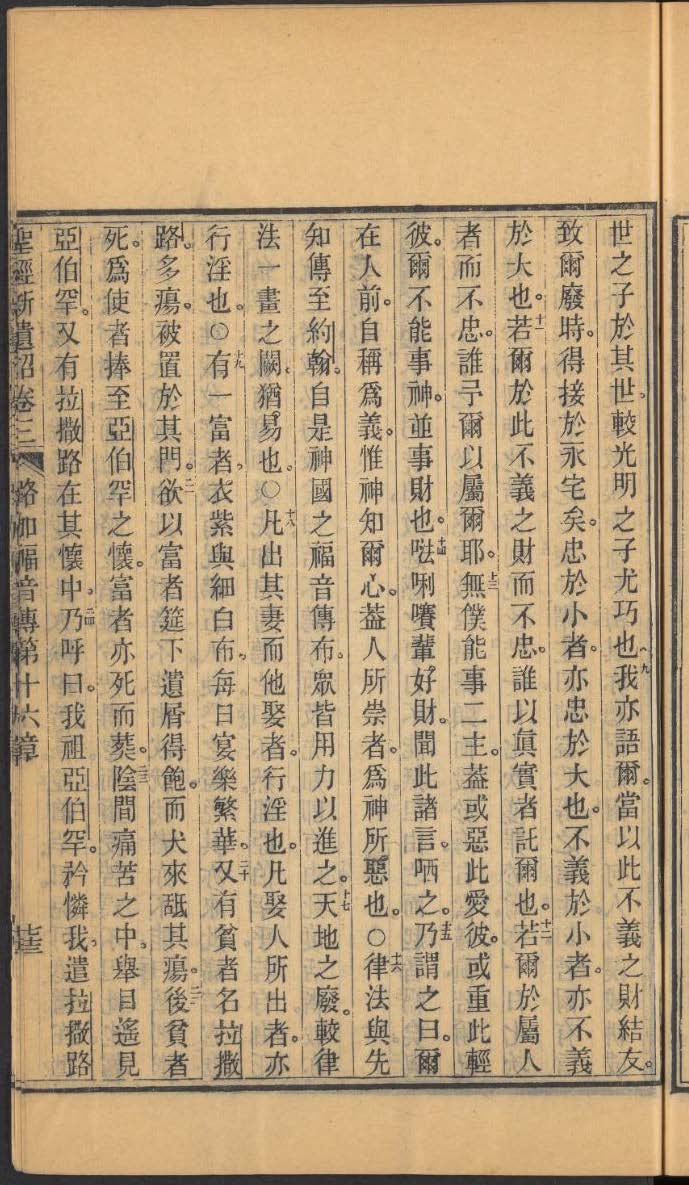 世之子於其世。較光明之子尤巧也。九我亦語爾。當以此不義之財結友。
致爾廢時。得接於永宅矣。忠於小者。亦忠於大也。不義於小者。亦不義
於大也。十一若爾於此不義之財而不忠。誰以眞實者託爾也。十二若爾於屬人
者而不忠。誰予爾以屬爾耶。十三無僕能事二主。葢或惡此愛彼。或重此輕
彼。爾不能事神。並事財也。十四㕸唎㘔輩好財。聞此諸言。哂之。十五乃謂之曰。爾
在人前。自稱爲義。惟神知爾心。葢人所崇者。爲神所惡也。○十六律法與先
知傳至約翰。自是神國之福音傳布。眾皆用力以進之。十七天地之廢。較律
法一畫之闕。猶易也。○十八凡出其妻而他娶者。行淫也。凡娶人所出者。亦
行淫也。○十九有一富者。衣紫與細白布。每日宴樂繁華。二十又有貧者名拉撒
路。多瘍。被置於其門。二一欲以富者筵下遺屑得飽。而犬來舐其瘍。二二後貧者
死。爲使者捧至亞伯罕之懷。富者亦死而葬。二三陰間痛苦之中。舉目遙見
亞伯罕。又有拉撒路在其懷中。二四乃呼曰。我祖亞伯罕。矜憐我。遣拉撒路
聖經新遺詔卷三 路加福音傳第十六章